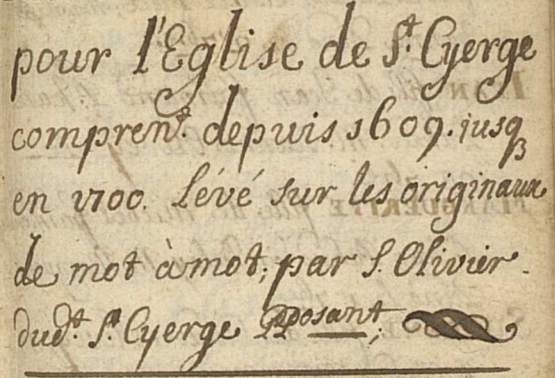 pour l'Eglise de St. Cyerge
comprent. depuis 1609. jusq
en 1700. Lévé sur les originaux
de mot à mot; par S. Olivier.
dudt. St Cyerge